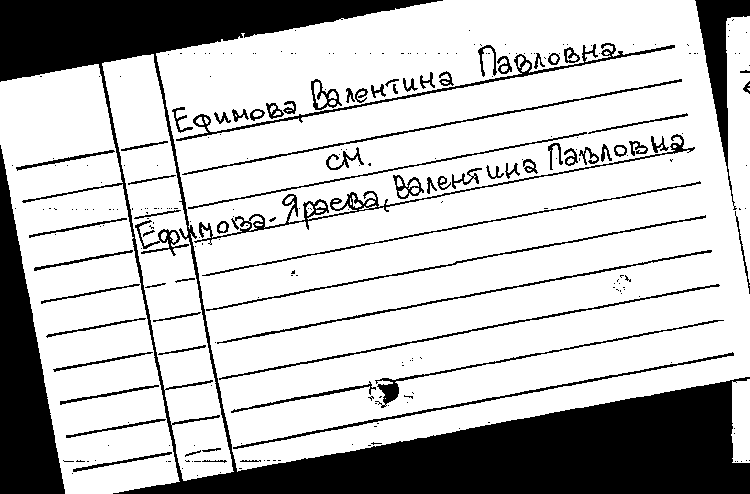 Ефимова, Валентина Павловна.
см.
Ефимова-Яраева, Валентина Павловна